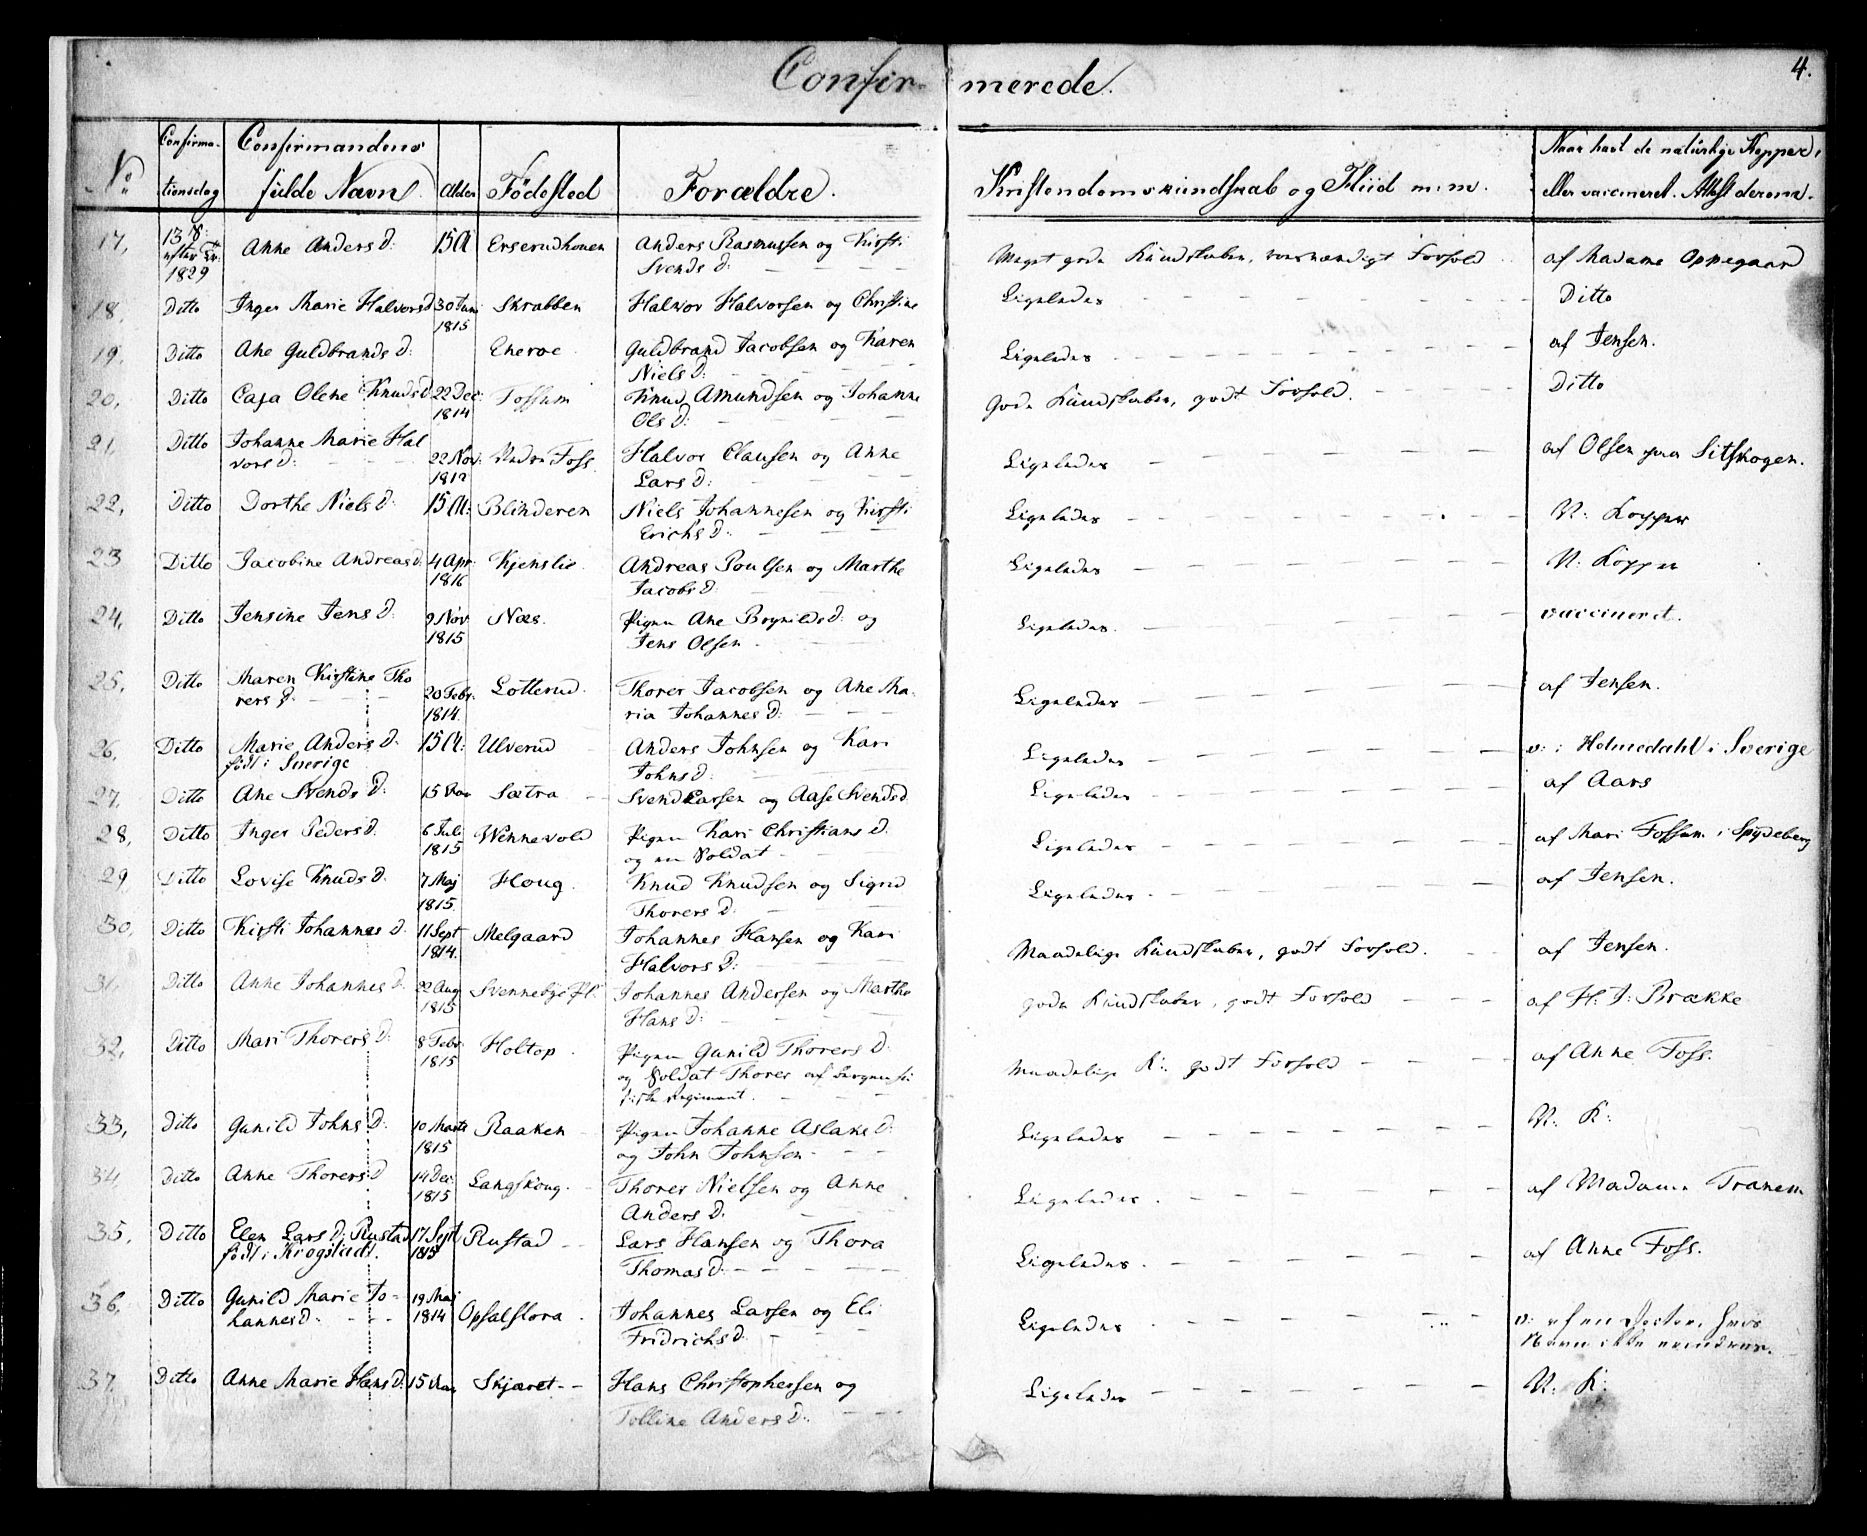 Confirmerede.
4.
No
Confirmationsdag
Confirmandens fulde Navn.
Alder
Födested
Forældre.
Kristendomskundskab og Fliid m: m.
Naar havt de naturlige Kopper, eller vaccineret. Attest derom.
17, 13 S: efter Tr: 1829 Anne Anders D: 15 A Erserudhouen Anders Rasmussen og Kirsti Meget gode Kundskaber, Forhold af Madame Oppegaard
Svends D:
18, Ditto Inger Marie Halvorsd 30 Juni 1815 Skrabben Halvor Halvorsen og Christine Ligeledes Ditto
19, Ditto Ane Guldbrands D: Eneroe Guldbrand Jacobsen og Karen Ligeledes af Jensen.
Niels D:
20, Ditto Caja Olene Knudsd 22 Dec: 1814 Fossum Knud Amundsen og Johanne Gode Kundskaber, godt Forhold. Ditto
Ols D:
21, Ditto Johanne Marie Hal 22 Nov: Nedre Foss Halvor Clausen og Anne Ligeledes af Olsen paa Sitskogen.
vors D: Lars D:
22, Ditto Dorthe Niels D: 15 A: Blinderen Niels Johannesen og Kirsti Ligeledes N: Kopper
Erichs D:
23 Ditto Jacobine Andreasd: 4 Apr: 1816 Kjenslie Andreas Poulsen og Marthe Ligeledes N: Kopper
Jacobs D:
24, Ditto Jensine Jens D: 9 Nov 1815 Næs. Pigen Ane Brynilds d: og Ligeledes. vaccineret.
Jens Olsen
25, Ditto Maren Kirstine Tho 20 Febr. 1814. Lotterud. Thorer Jacobsen og Ane Ma: Ligeledes af Jensen.
rers D: ria Johannes D:
26, Ditto Marie Anders D. 15 A: Ulverud Anders Johnsen og Kari Ligeledes v: i Holmedahl i Sverige
födt i Sverige Johns D:
27, Ditto Ane Svends D: 15 Aar Sætra Svend Larsen og Aase Svendsd Ligeledes af Aars
28, Ditto Inger Peders D. 6 Juli 1815 Wennevold Pigen Kari Christians D. Ligeledes af Mari Fossum i Spydeberg
og en Soldat
29 Ditto Lovise Knuds D. 7 Maj 1815. Houg. Knud Knudsen og Sigrid Ligeledes af Jensen.
Thorers D:
30, Ditto Kirsti Johannes D. 11 Sept 1814. Melgaard Johannes Hansen og Kari Maadelige Kundskaber, godt Forhold. af Jensen.
Halvors D:
31, Ditto Anne Johannes D: 22 Aug 1815 Svennebye Pl: Johannes Andersen og Marthe gode Kundskaber, godt Forhold af H: J: Brække
Hans D:
32, Ditto Mari Thorers D: 8 Febr. 1815 Holtop. Pigen Gunild Thorers D: Maadelige K: godt Forhold af Anne Foss.
og Soldat Thorer af
Regiment.
33, Ditto Gunild Johns D: 10 Marts 1815 Raaken Pigen Johanne Aslaks D: Ligeledes N: K:
og John Johnsen
34 Ditto Anne Thorers D 14 Dec: 1815 Langskoug. Thorer Nielsen og Anne Ligeledes af Madame Tranem
Anders D.
35, Ditto Elen Lars D: Rustad 17 Sept 1815 Rustad Lars Hansen og Thora Ligeledes. af Anne Foss.
födt i Krogstad. Thomas D:
36, Ditto Gunild Marie Jo- 19 Maj 1814 Opsalslora Johannes Larsen og Eli Ligeledes v: af en Doctor, hvis
hannesd: Fridrichs D: Navn ikke erindres.
37. Ditto Anne Marie Hans D: 15 Aar Skjæret Hans Christophersen og Ligeledes N: K:
Tolline Anders D: